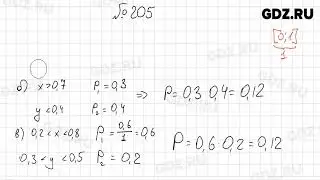 №205
GDZ.RU
[0,1]
1
б) x>0,7 P₁=0,3 ⇒ P=0,3·0,4=0,12
y<0,4 P₂=0,4
в) 0,2<x<0,8 P₁=0,6/1=0,6 P=0,6·0,2=0,12
0,3<y<0,5 P₂=0,2